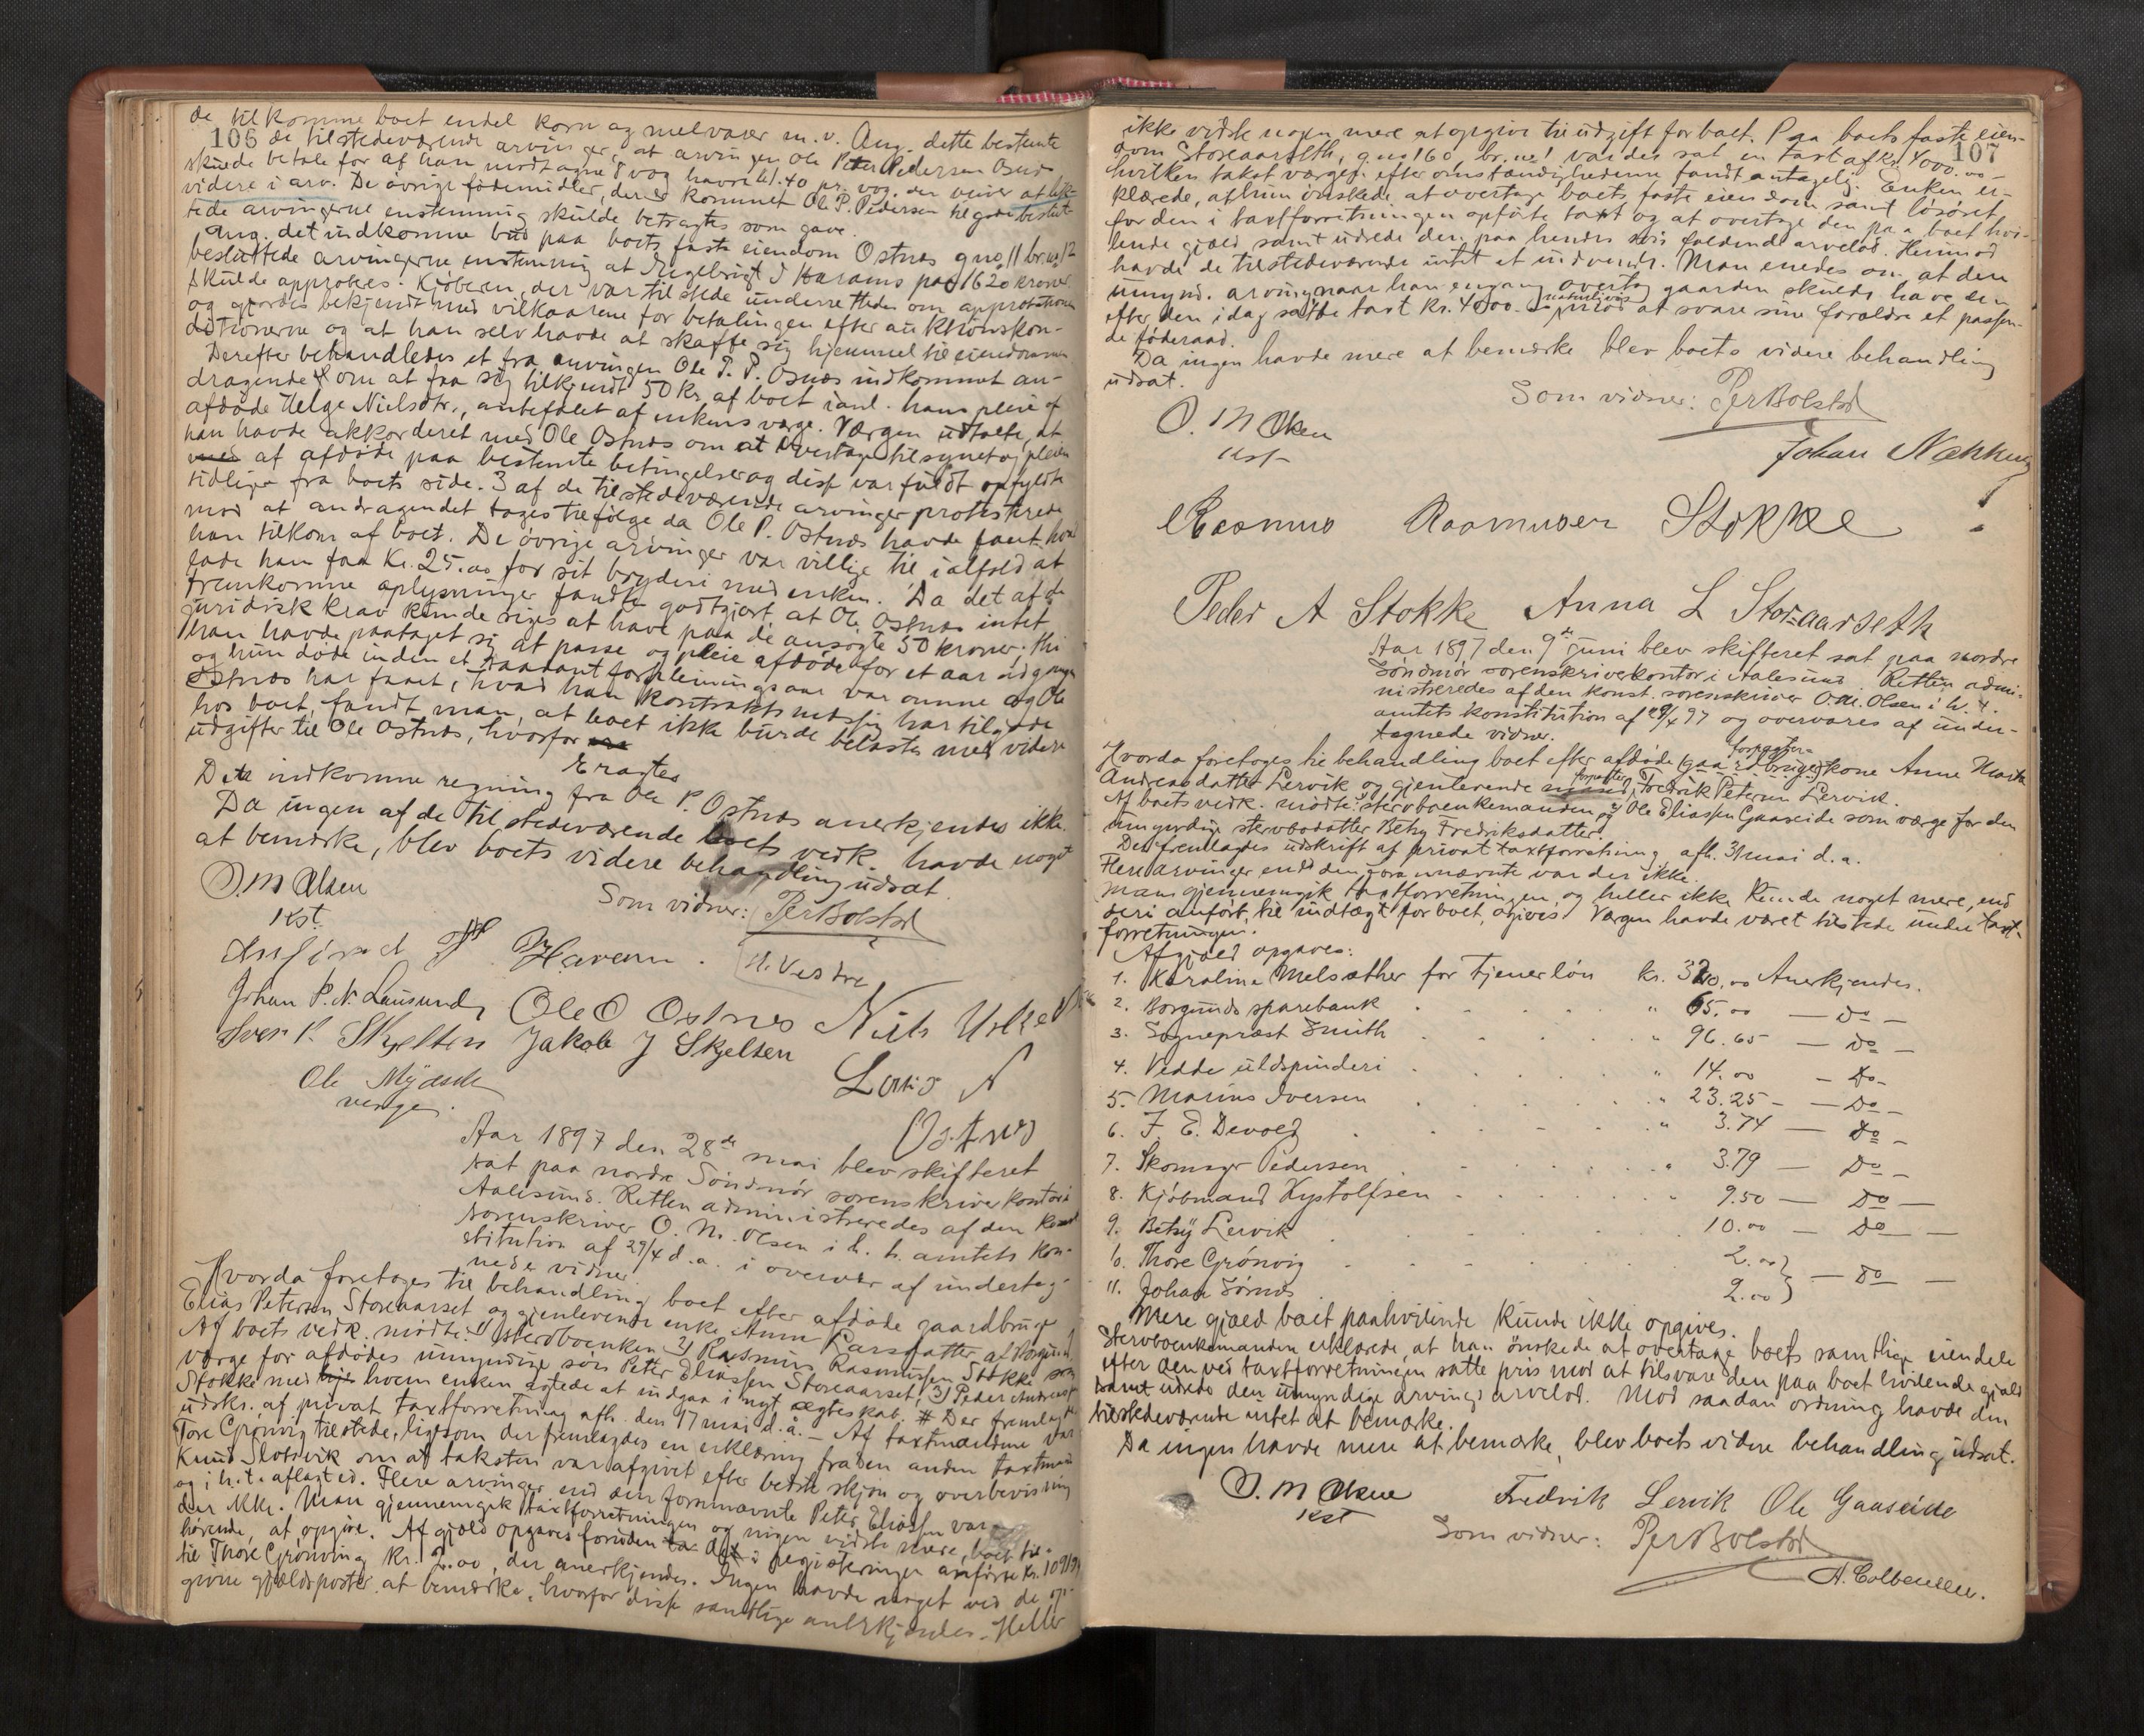 106
de tilkomme boet endel korn og melvarer m. v. Ang. dette bestemte
de tilstedeværende arvinger, at arvingen Ole Peter Pedersen Osnes
skulde betale for af han modtagne 8 vog havre kl. 40 pr. vog, der
videre i arv. De øvrige fødemidler, der er kommet Ole P. Pedersen tilgode beslut-
tede arvingerne enstemmig skulde betragtes som gave.
Ang. det indkomne bud paa boets faste eiendom Ostnes gno. 11 br.no. 12
besluttede arvingerne enstemmig at Ingebrigt J Harams paa 1620 kroner
skulde approberes. Kjøberen, der var tilstede underrettedes om approbationen
og gjordes bekjendt med vilkaarene for betalingen efter auktionskon-
ditionerne og at han selv havde at skaffe sig hjemmel til eiendommen.
Derefter behandledes et fra arvingen Ole P. P. Osnæs indkommet an-
dragende om at faa sig tilkjendt 50 kr. af boet i anl. hans pleie af
afdøde Helge Nielsdtr., anbefalet af enkens verge. Værgen udtalte, at
han havde akkorderet med Ole Ostnæs om at overtage tilsynet og pleien
af afdøde paa bestemte betingelser og disse var fuldt opfyldte
tidligere fra boets side. 3 af de tilstedeværende arvinger protesterede
mod at andragendet toges tilfølge da Ole P. Ostnæs havde faaet hvad
han tilkom af boet. De øvrige arvinger var villige til i alfald at
lade han faa Kr. 25.00 for sit bryderi med enken. Da det af de
fremkomne oplysninger fandtes godtgjort, at Ole Ostnæs intet
juridisk krav kunde siges at have paa de ansøgte 50 kroner, thi
han havde paataget sig at passe og pleie afdøde for et aar ad gangen
og hun døde inden et saadant forpleiningsaar var omme og Ole
Ostnæs har faaet, hvad han kontraktsmæssig har tilgode
hos boet, fandt man, at boet ikke burde belastes med videre
udgifter til Ole Ostnæs, hvorfor
Eragtes
Den indkomne regning fra Ole P. Ostnæs anerkjendes ikke.
Da ingen af de tilstedeværende boets vedk. havde noget
at bemærke, blev boets videre behandling udsat.
O. M Olsen
kst.
Som vidner: Per Bolstad
H. Vestre
Johan P. N. Lausund, Ole O Ostnes Niels
Iver P. Skjelten Jakob J Skjelten
Ole
verge.
Lars N
Ostnes
Aar 1897 den 28de mai blev skifteret
sat paa nordre Søndmør sorenskriverkontor i
Aalesund. Retten administreredes af den konst.
sorenskriver O. M. Olsen i h. t. amtets kon-
stitution af 29/4 d. a. i overvær af underteg-
nede vidner.
Hvorda foretoges til behandling boet efter afdøde gaardbruger
Elias Petersen Storeaarset og gjenlevende enke Anne Larsdatter af Borgund.
Af boets vedk. mødte: 1) Stervboenken 2) Rasmus Rasmussen Stokke som
værge for afdødes umyndige søn Peter Eliassen Storeaarset, 3) Peder Andreas
Stokke med hvem enken agtede at indgaa i nyt ægteskab. # Der fremlagdes
udskr. af privat taxtforretning afh. den 17 mai d. å. – Af taxtmændene var
Tore Grønvig tilstede, ligesom der fremlagdes en erklæring fra den anden taxtmand
Knud Slotsvik om at taksten var afgivet efter bedste skjøn og overbevisning
og i h. t. aflagt ed. Flere arvinger end den fornævnte Peter Eliassen var
der ikke. Man gjennemgik taxtforretningen og ingen vidste mere, boet til-
hørende, at opgive. Af gjæld opgaves foruden det i registeringen anførte Kr.
til Thore Grønving Kr. 2.00, der anerkjendes. Ingen havde noget ved de op-
givne gjældsposter at bemærke, hvorfor disse samtlige anerkjendes. Heller
107
ikke vidste nogen mere at opgive til udgift for boet. Paa boets faste eien-
dom Storeaarseth, g.no 160, br.no 1 var der sat en taxt af kr. 4000.00 –
hvilken takst værgen efter omstændighederne fandt antagelig. Enken er-
klærede, at hun ønskede at overtage boets faste eiendom samt løsøret
for den i taxtforretningen opførte taxt og at overtage den paa boet hvi-
lende gjæld samt udrede den paa hendes søn faldende arvelod. Herimod
havde de tilstedeværende intet at indvende. Man enedes om, at den
umynd. arving naar han engang overtog gaarden skulde have den
efter den idag satte taxt kr. 4000.– naturligvis at svare sine forældre et passen-
de føderaad.
Da ingen havde mere at bemærke blev boets videre behandling
udsat.
Som vidner: Per Bolstad
O. M Olsen
kst
Johan
Rasmus Rasmusen Stokke
Peder A Stokke Anna L Storaarseth
Aar 1897 den 9de juni blev skifteret sat paa nordre
Søndmør sorenskriverkontor i Aalesund. Retten admi-
nistreredes af den konst. sorenskriver O. M. Olsen i h. t.
amtets konstitution af 29/4 97 og overvares af under-
tegnede vidner.
Hvorda foretoges til behandling boet efter afdøde (gaardbruger) forpagter- kone Anne Marta
Andreasdatter Lervik og gjenlevende forpagter Fredrik Petersen Lervik.
Af boets vedk. mødte: stervboenkemanden, 2) Ole Eliassen Gaaseide som værge for den
umyndige stervbodatter Betsy Fredriksdatter.
Der fremlagdes udskrift af privat taxtforretning afh. 31 mai d. a.
Flere arvinger end den foran nævnte var der ikke.
Man gjennemgik taxtforretningen, og heller ikke kunde noget mere, end
deri anført, til indtægt for boet, opgives. Værgen havde været tilstede under taxt-
forretningen.
Af gjæld opgaves:
1. Karoline Melsæther for tjenerløn kr. 320.00 Anerkjendes.
2. Borgunds sparebank " 65.00 – Do –
3. Sogneprest Smith " 96.65 – Do –
4. Vedde uldspinderi " 14.00 – Do –
5. Marius Iversen " 23.25 – Do –
6. F. E. Devold " 3.74 – Do –
7. Skomager Pedersen " 3.79 – Do –
8. Kjøbmand Kystolfsen " 9.50 – Do –
9. Betsy Lervik 10.00 – Do –
10. Thore Grønvig 2.00 } – Do –
11. Johan Sørnes 2.00 }
Mere gjæld boet paahvilende kunde ikke opgives.
Stervboenkemanden erklærede, at han ønskede at overtage boets samtlige eiendele
efter den ved taxtforretningen satte pris mod at tilsvare den paa boet hvilende gjæld
samt udrede den umyndige arvings arvelod. Mod saadan ordning havde den
tilstedeværende intet at bemærke.
Da ingen havde mere at bemærke, blev boets videre behandling udsat.
O. M Olsen
kst
Fredrik Lervik Ole Gaaseide
Som vidner: Per Bolstad
A. Colbensen.